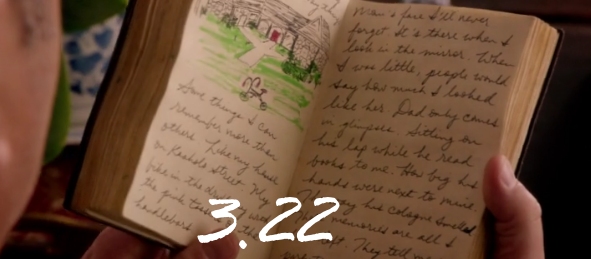 Some things I can
remember more than
others. Like my house
on Kashola street. My
bike in the driveway
the pink tassels
handlebars
Mom's face I'll never
forget. It's there when I
look in the mirror. When
I was little, people would
say how much I looked
like her. Dad only comes
in glimpses. Sitting on
his lap while he read
books to me. How big his
hands were next to mine.
his cologne smelled
memories are all I
They tell me
3.22